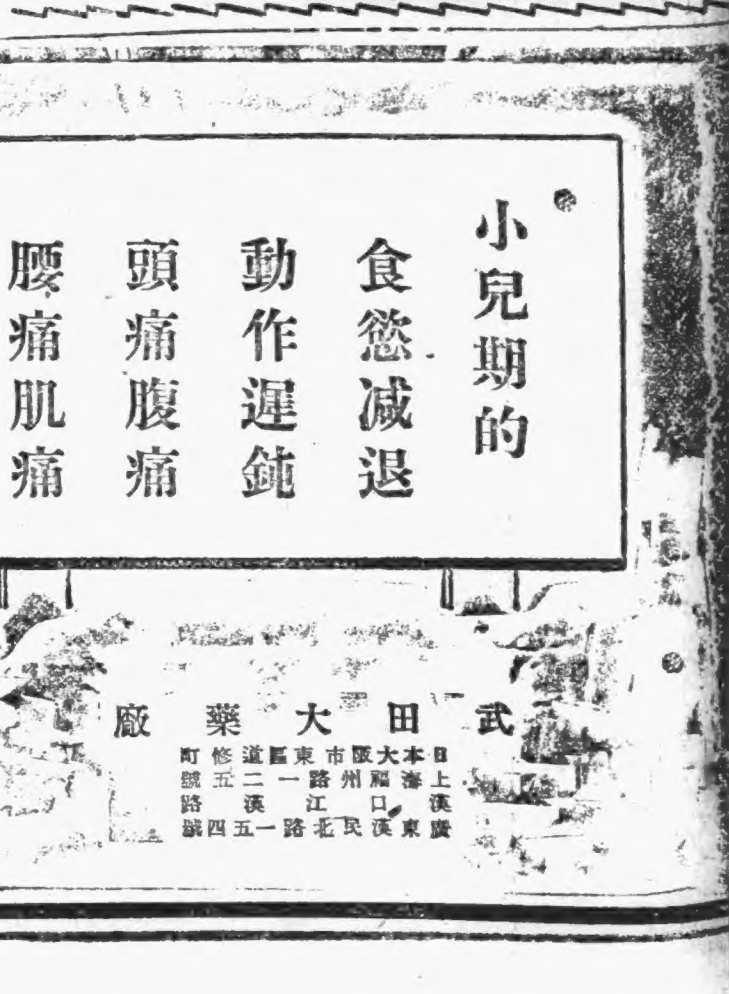 小兒期的
食慾減退
動作遲鈍
頭痛腹痛
腰痛肌痛
武田大藥廠
日本大阪市東區道修町
上海福州路一二五號
漢口江漢路
廣東漢民北路一五四號